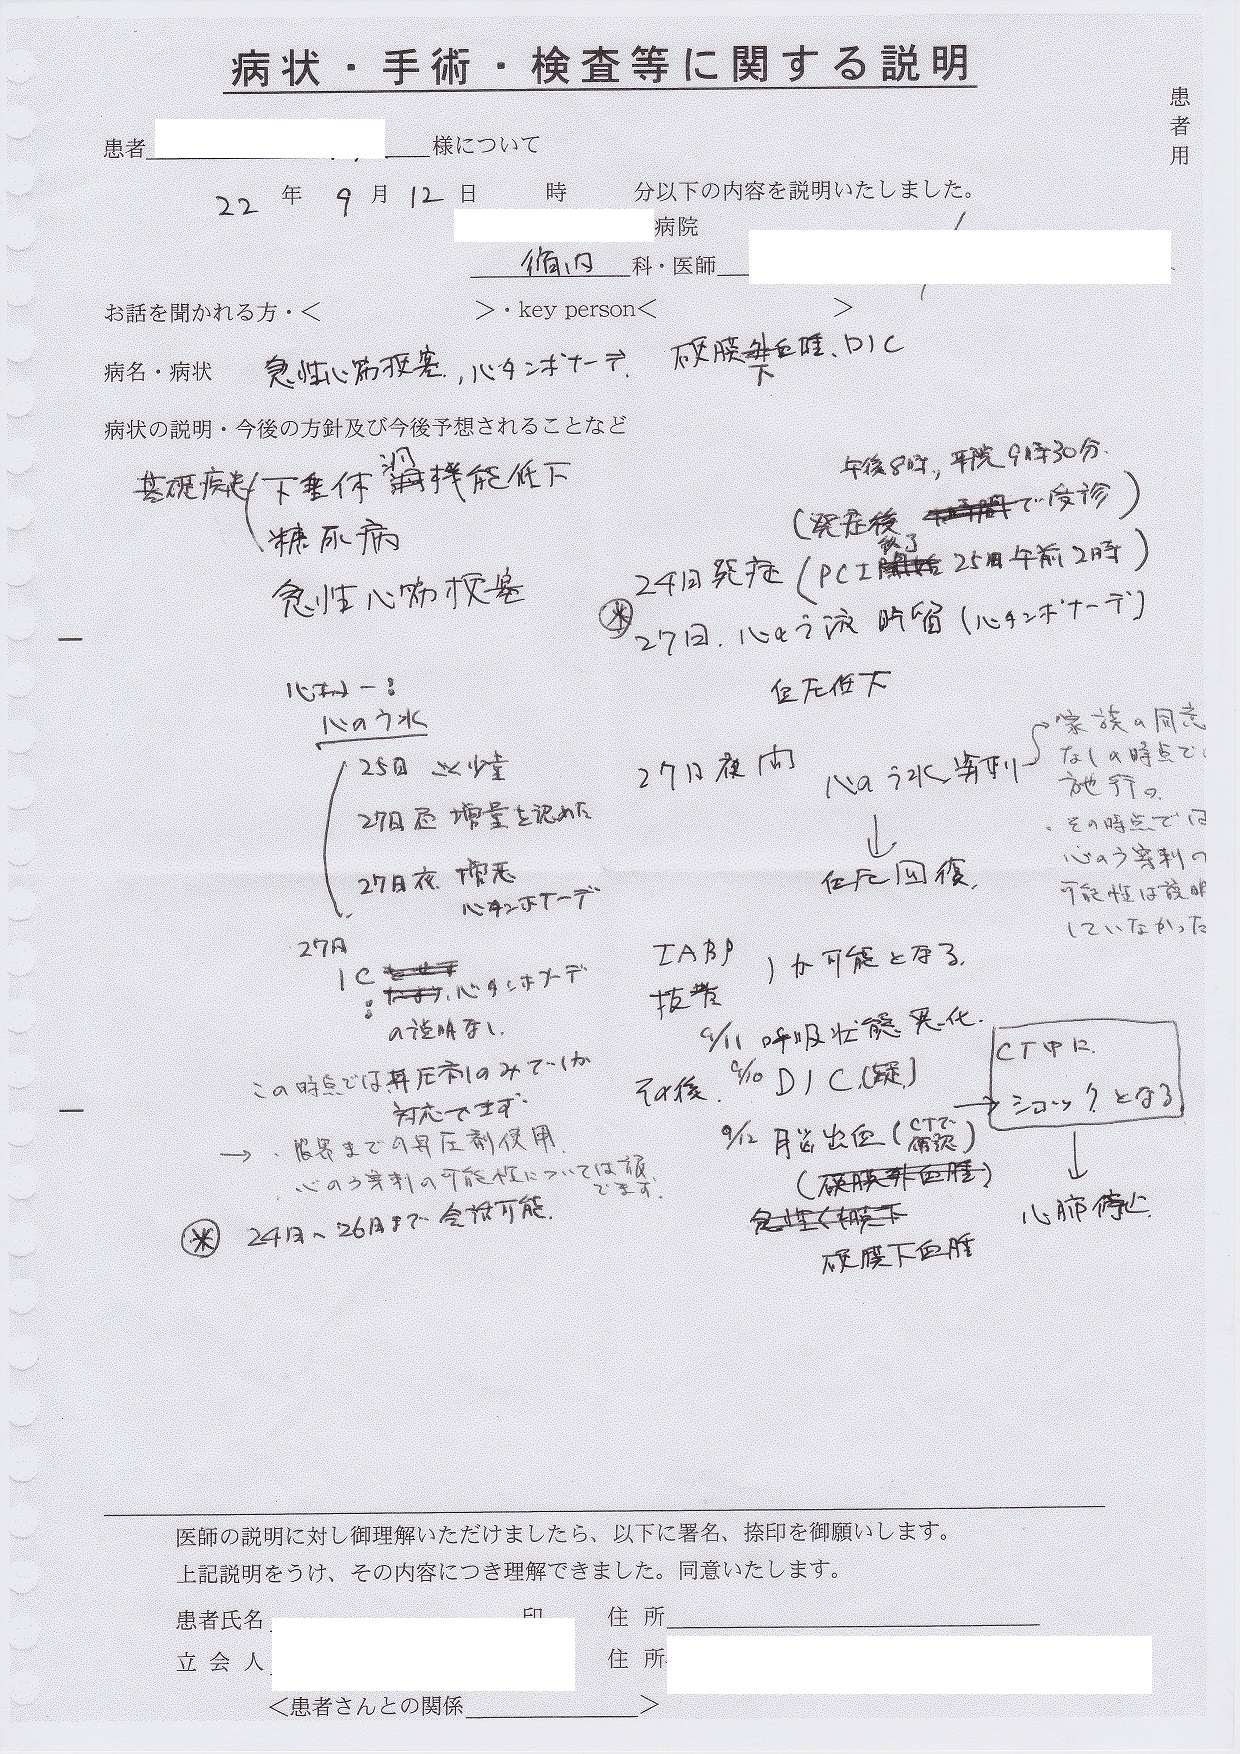 病状・手術・検査等に関する説明
患者用
患者 様について
22 年 9 月 12 日 時 分以下の内容を説明いたしました。
病院
循内 科・医師
お話を聞かれる方・< >・key person< >
病名・病状 急性心筋梗塞、心タンポナーデ、硬膜外下血腫、DIC
病状の説明・今後の方針及び今後予想されることなど
基礎疾患 下垂体 機能低下
糖尿病
急性心筋梗塞
午後8時, 平院9時30分.
(発症後 時間で受診)
24日発症(PCI 終了 開始 25日午前2時)
27日. 心のう液貯留(心タンポナーデ)
血圧低下
心エコー:
心のう水
25日 ごく少量
27日昼 増量を認めた
27日夜. 増悪
心タンポナーデ
27日夜間 心のう水穿刺
血圧回復.
家族の同意
なしの時点で
施行の.
・その時点では
心のう穿刺の
可能性は説明
していなかった
27日
IC
心タンポナーデ
の説明なし.
この時点では昇圧剤のみでしか
対応できず.
→ ・限界までの昇圧剤使用.
・心のう穿刺の可能性については
でます.
※ 24日〜26日まで会話可能.
IABP
抜去 が可能となる.
9/11 呼吸状態悪化.
その後. 9/10 DIC(疑)
9/12 脳出血(CTで確認)
(硬膜外血腫)
急性くも膜下
硬膜下血腫
CT中に
ショックとなる
心肺停止.
医師の説明に対し御理解いただけましたら、以下に署名、捺印を御願いします。
上記説明をうけ、その内容につき理解できました。同意いたします。
患者氏名 印 住 所
立 会 人 住 所
<患者さんとの関係 >